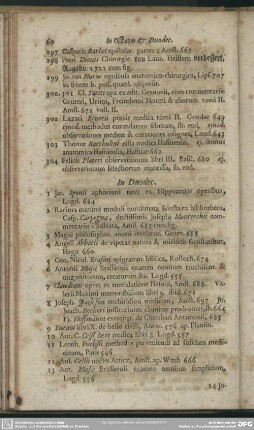 60 In Octavo & Duodec.
297 Casparis Barlæi epistolæ. partes 2 Amst. 667
298 Petri Dionis Chirurgie von Laur. Heistern verbessert,
Augsb. 1722 cum fig.
299 Jo. van Horne opuscula anatomico-chirurgica, Lips. 707
300. 301 Cl. Taciti opera ex edit. Gronovii, cum commentariis
Amst. 672 voll. II.
302 Lazari Riverii praxis medica tomi II. Goudæ 649
ejusd. methodus curandarum febrium, ib. eod. ejusd.
observationes medicæ & curationes insignes, Lond. 643
303 Thomæ Bartholini cista medica Hafniensis, ej. domus
anatomica Hafniensis, Hafniæ 662
304 Felicis Plateri observationum libri III. Basil. 680 ej.
observationum selectiorum mantissa, ib. eod.
In Duodec.
1 Jac. Sponii aphorismi novi ex Hippocratis operibus,
Lugd. 684
2 Rariora maximi moduli numismata selecta ex bibliotheca
Casp. Carpegna, Josephi Monterchii com-
mentariis illustrata, Amst. 685 cum fig.
3 Magni philosophor. arcani revelator, Genev. 688
4 Angeli Abbatii de viperæ natura & mirificis facultatibus,
Hagæ 660
5 Geo. Nicol. Erasmi epigramm. biblica, Rostoch. 674
6 Antonii Musæ Brasavoli examen omnium trochiscor. &
unguentorum, ceratorum &c. Lugd. 555
7 Claudiani opera ex emendatione Heinsii, Amst. 688. Va-
lerii Maximi memorabilium libri 9, ibid. 671
8 Joseph. Jackson enchiridion medicum, Amst. 697 Jo.
Joach. Becheri institutiones chimicæ prodromæ, ib. 665
Fr. Hoffmanni exercitat. de Cinnabari Antimonii, 685
9 Lucani libri X. de bello civili, Antw. 576 ap. Plantin.
11 Leonh. Fuchsii methodus s. perveniendi ad solidam medi-
cinam, Paris 546
12 Aul. Gellii noctes Atticæ, Amst. ap. Waesb 666
13 Ant. Musæ Brasavoli examen omnium simplicium,
Lugd. 556
14 Jo-